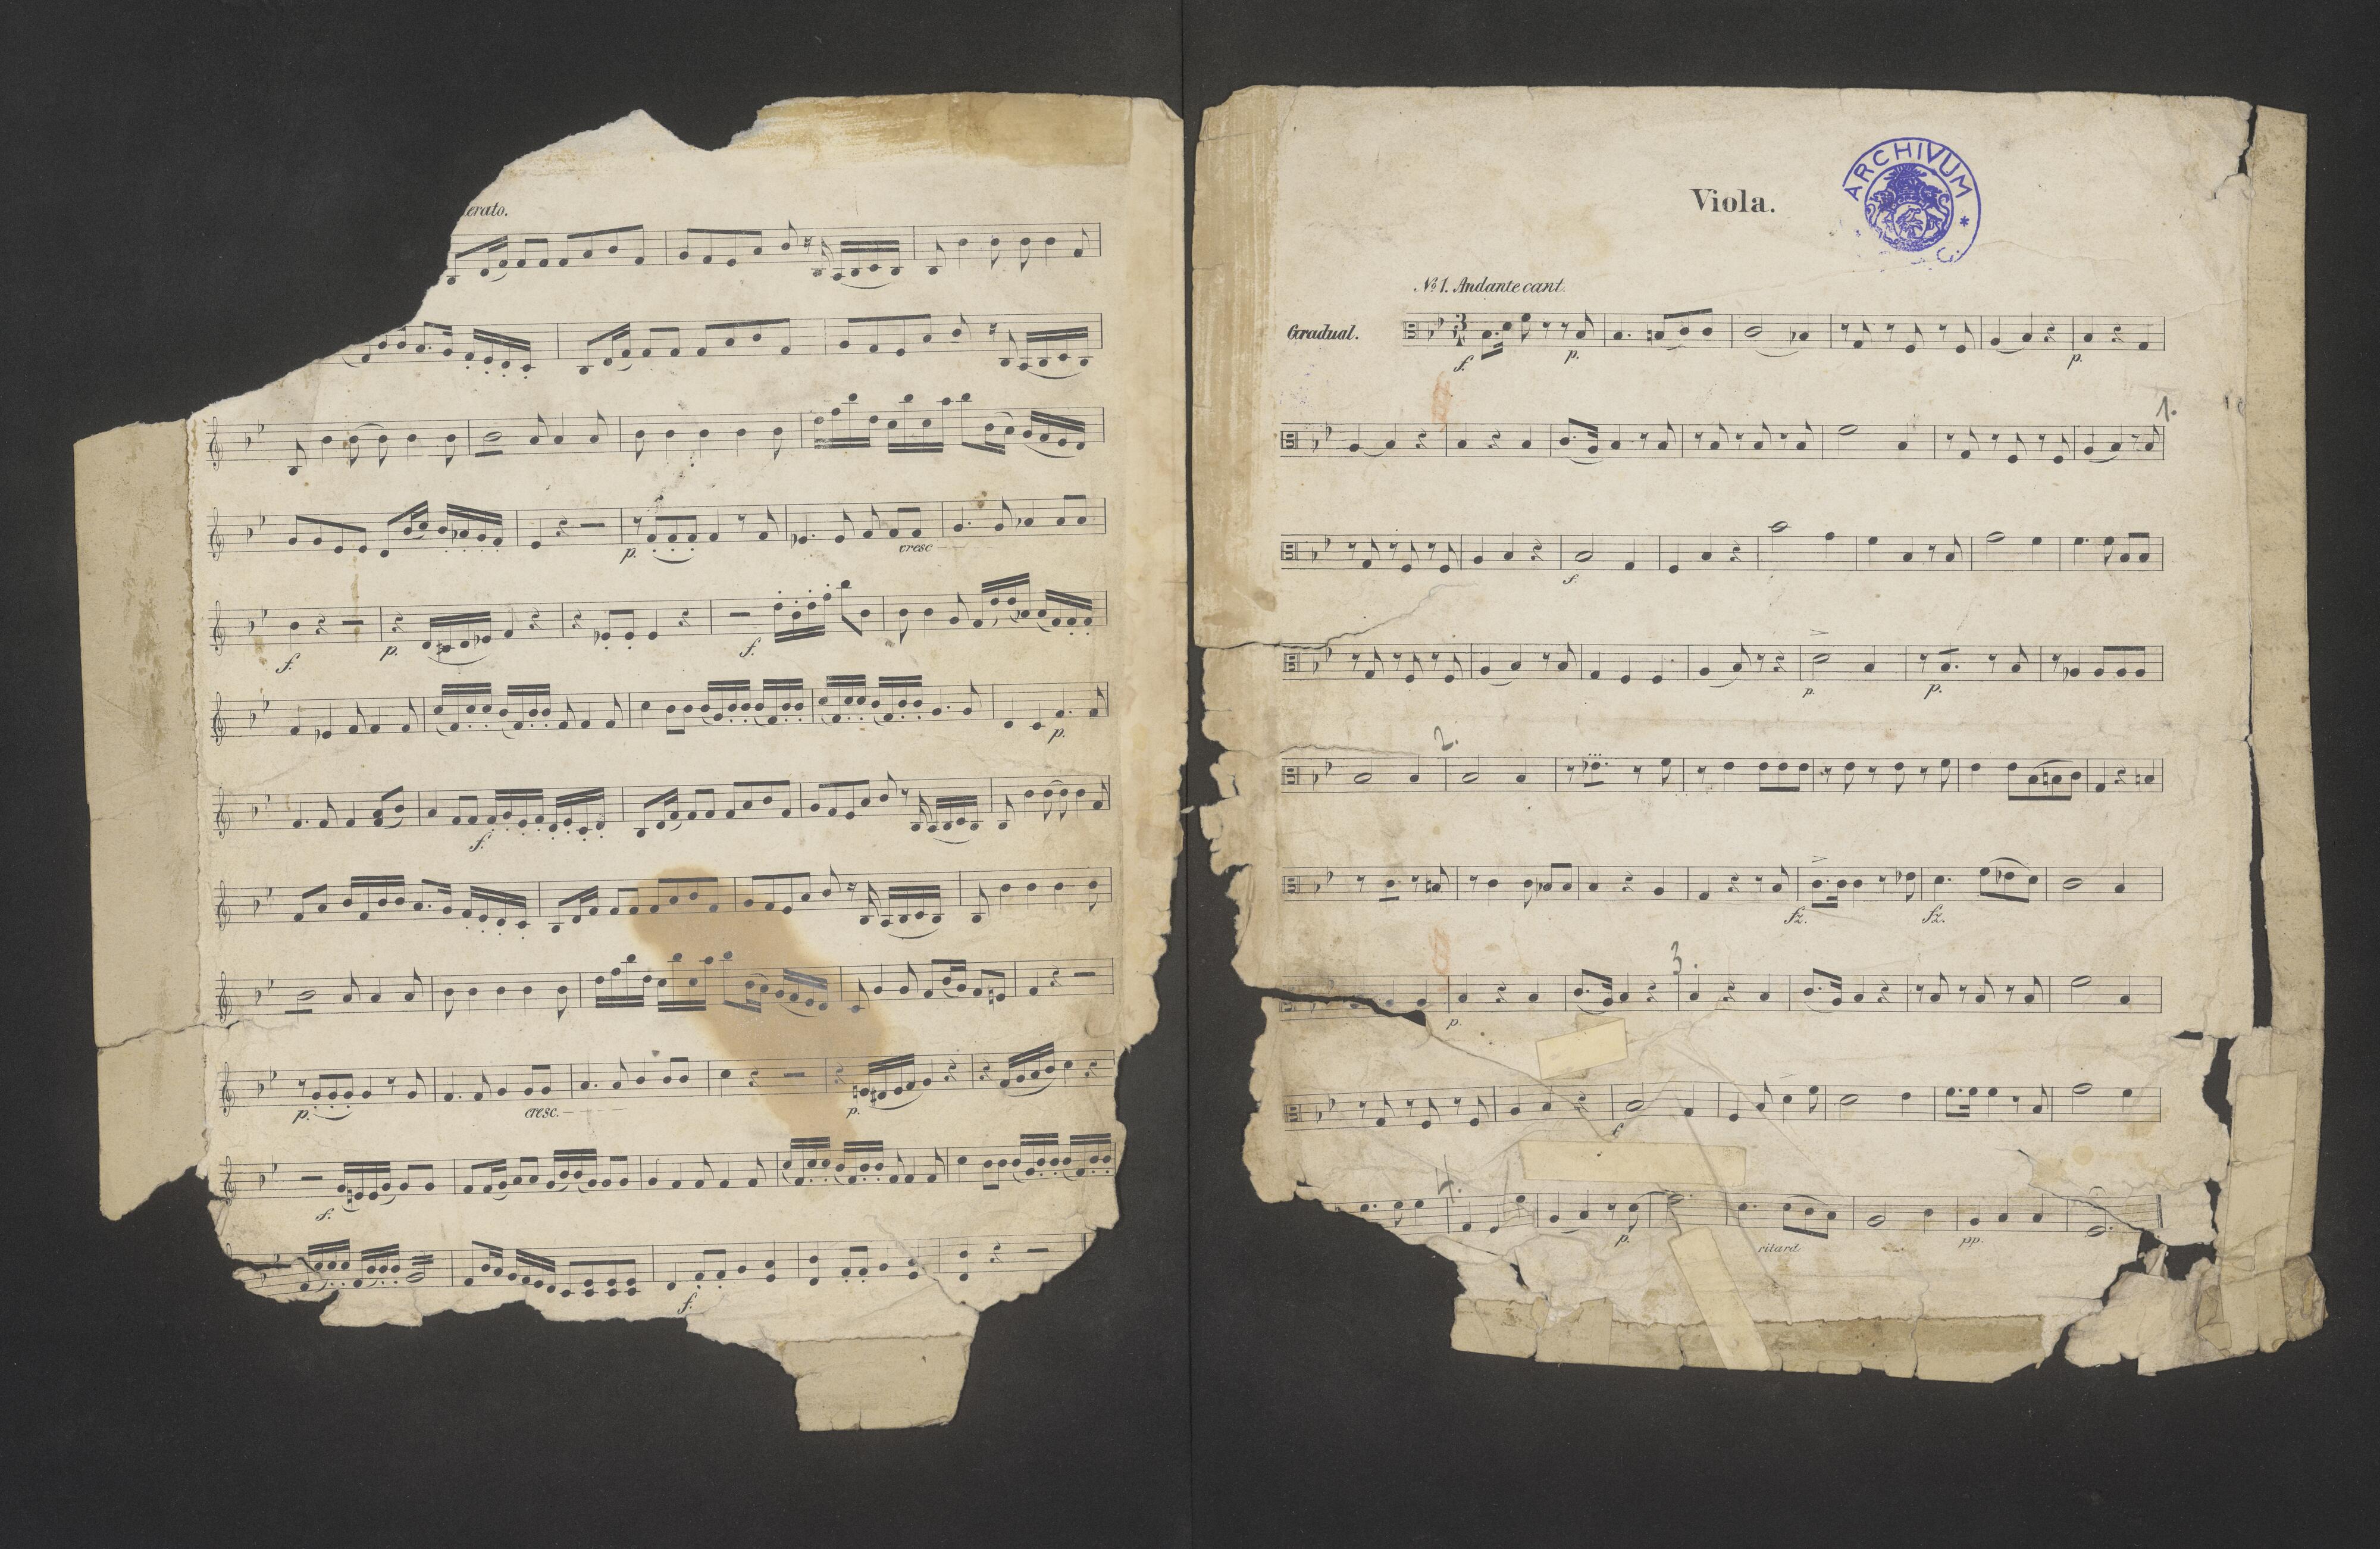 erato.
p.
cresc
f.
p.
f.
p.
f.
p.
cresc.
p.
f.
f.
Viola.
ARCHIVUM *
No 1. Andante cant.
Gradual.
3
4
f.
p.
p.
1.
f.
p.
p.
2.
fz.
fz.
3.
p.
f
4.
p.
ritard
pp.